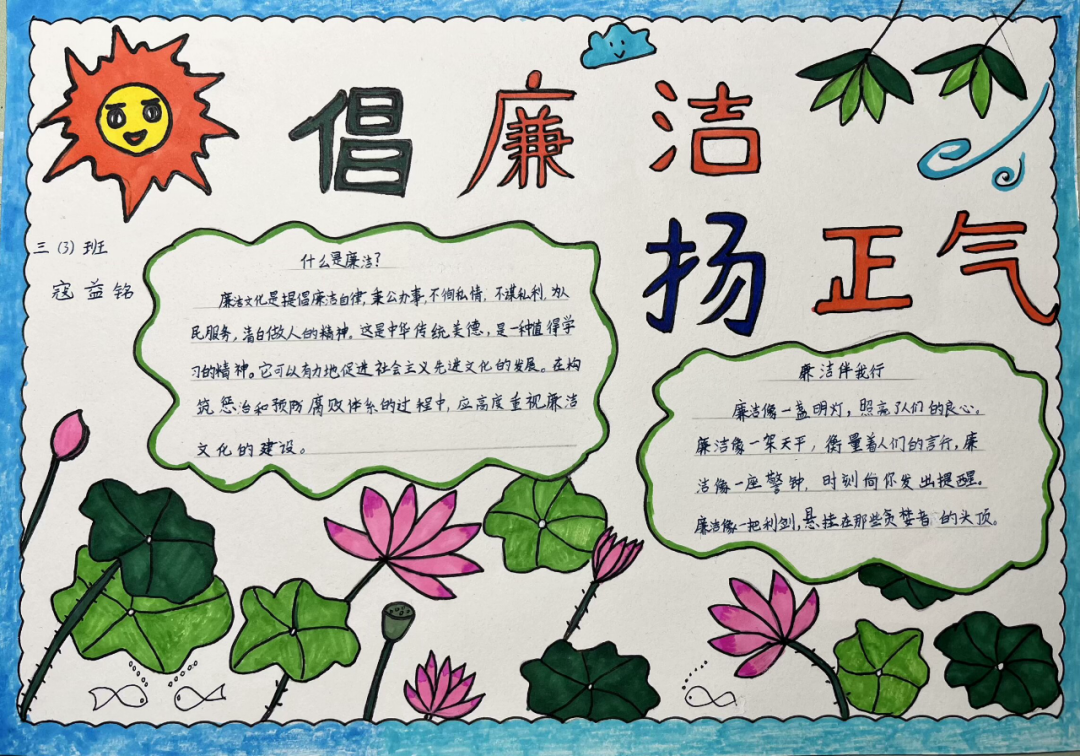 倡廉洁
扬正气
三（3）班
寇益铭
什么是廉洁？
廉洁文化是提倡廉洁自律，秉公办事，不徇私情，不谋私利，为人
民服务，清白做人的精神。这是中华传统美德，是一种值得学
习的精神。它可以有力地促进社会主义先进文化的发展。在构
筑惩治和预防腐败体系的过程中，应高度重视廉洁
文化的建设。
廉洁伴我行
廉洁像一盏明灯，照亮了人们的良心。
廉洁像一架天平，衡量着人们的言行，廉
洁像一座警钟，时刻向你发出提醒。
廉洁像一把利剑，悬挂在那些贪婪者的头顶。